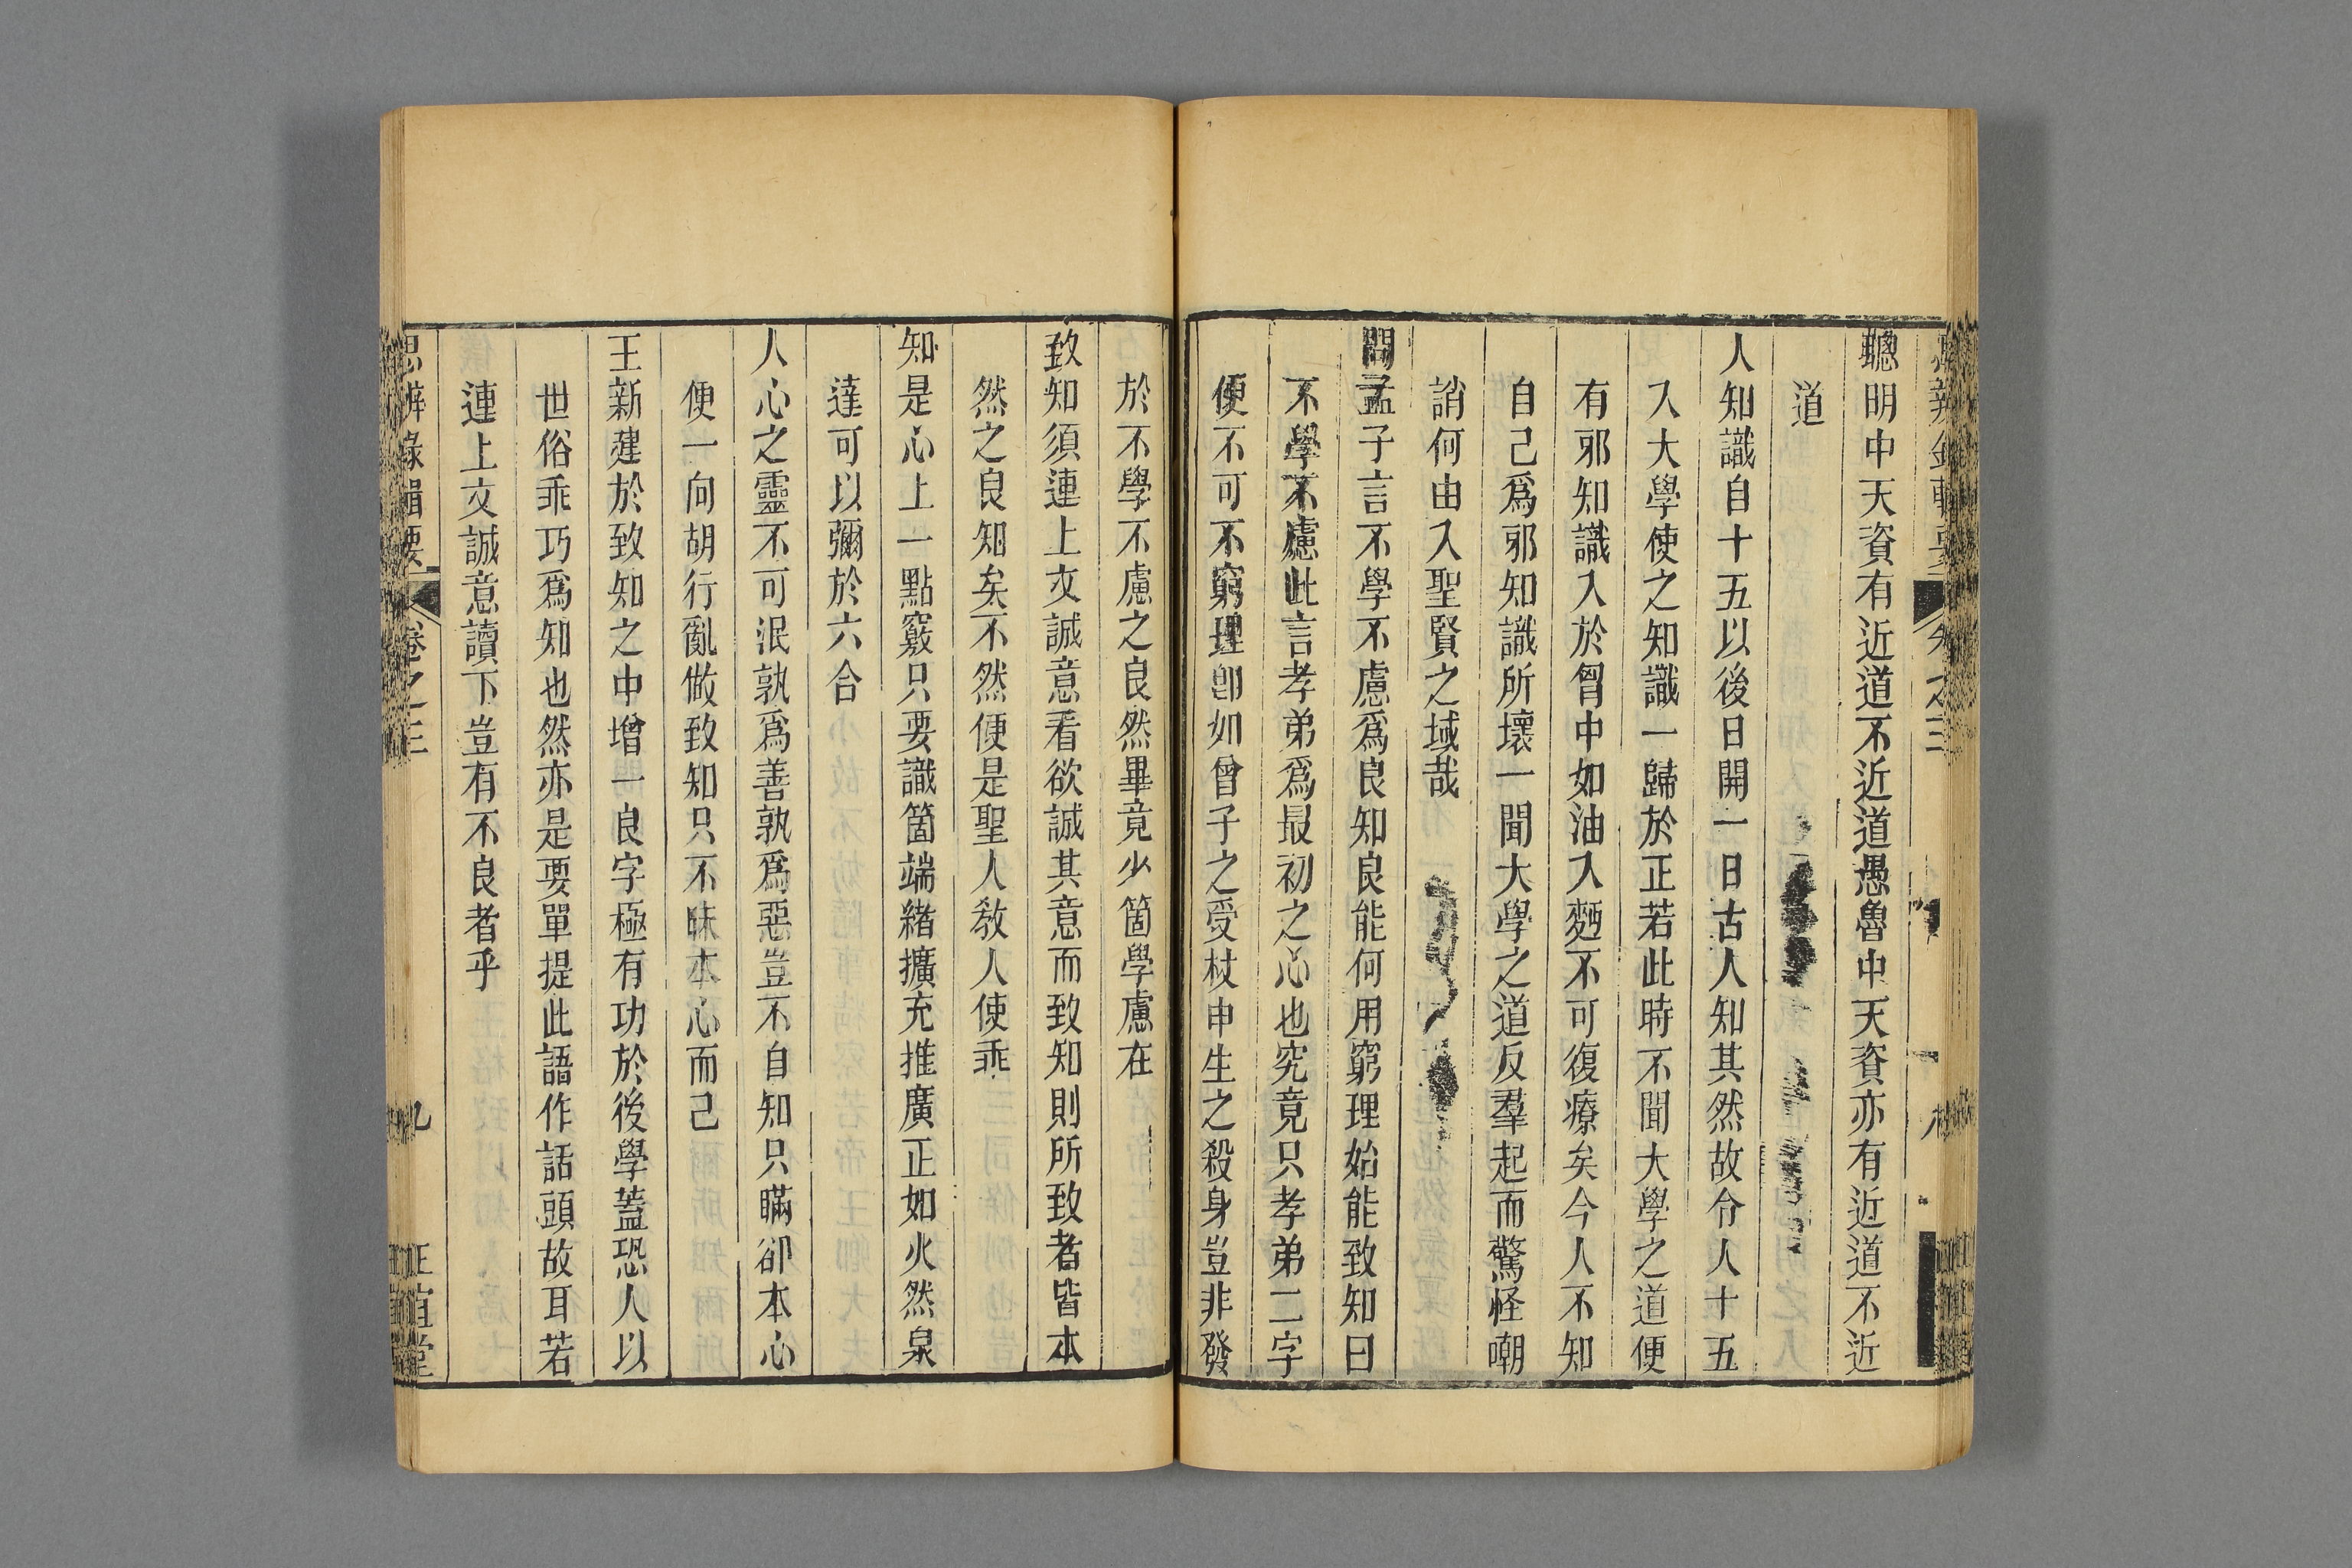 聰明中天資有近道不近道愚魯中天資亦有近道不近
道
人知識自十五以後日開一日古人知其然故令人十五
入大學使之知識一歸於正若此時不聞大學之道便
有邪知識入於胷中如油入麫不可復療矣今人不知
自己爲邪知識所壞一聞大學之道反羣起而驚怪嘲
誚何由入聖賢之域哉
問孟子言不學不慮爲良知良能何用窮理始能致知曰
不學不慮此言孝弟爲最初之心也究竟只孝弟二字
便不可不窮理卽如曾子之受杖申生之殺身豈非發
於不學不慮之良然畢竟少箇學慮在
致知須連上文誠意看欲誠其意而致知則所致者皆本
然之良知矣不然便是聖人敎人使乖
知是心上一點竅只要識箇端緒擴充推廣正如火然泉
達可以彌於六合
人心之靈不可泯孰爲善孰爲惡豈不自知只瞞卻本心
便一向胡行亂做致知只不昧本心而已
王新建於致知之中增一良字極有功於後學蓋恐人以
世俗乖巧爲知也然亦是要單提此語作話頭故耳若
連上文誠意讀下豈有不良者乎
思辨錄輯要
卷之三
九
正誼堂